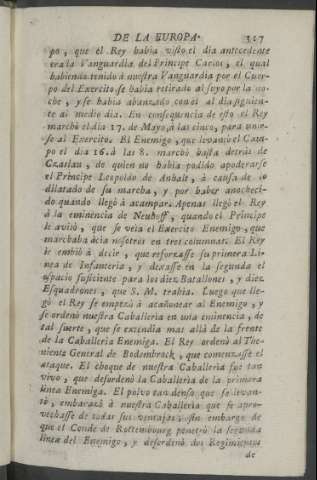 DE LA EUROPA. 327
po, que el Rey habia visto el dia antecedente
era la Vanguardia del Principe Carlos, el qual
habiendo tenido à nuestra Vanguardia por el Cuer-
po del Exercito se habia retirado al suyo por la no-
che, y se habia abanzado con el al dia siguien-
te al medio dia. En consequencia de esto el Rey
marchò el dia 17. de Mayo, à las cinco, para unir-
se al Exercito. El Enemigo, que levantò el Cam-
po el dia 16. à las 8. marchò hasta detràs de
Czaslau, de quien no habia podido apoderarse
el Principe Leopoldo de Anhalt, à causa de lo
dilatado de su marcha, y por haber anocheci-
do quando llegò à acampar. Apenas llegò el Rey
à la eminencia de Neuhoff, quando el Principe
le avisò, que se veìa el Exercito Enemigo, que
marchaba àcia nosotros en tres columnas. El Rey
le embiò à decir, que reforzasse su primera Li-
nea de Infanteria, y dexasse en la segunda el
espacio suficiente para los diez Batallones, y diez
Esquadrones, que S. M. trahia. Luego que lle-
gò el Rey se empezò à acañonear al Enemigo, y
se ordenò nuestra Caballeria en una eminencia, de
tal suerte, que se extendia mas allà de la frente
de la Caballeria Enemiga. El Rey ordenò al The-
niente General de Bodembrock, que comenzasse el
ataque. El choque de nuestra Caballeria fue tan
vivo, que desordenò la Caballeria de la primera
linea Enemiga. El polvo tan denso que se levan-
tò, embarazò à nuestra Caballeria que se apro-
vechasse de todas sus ventajas; sin embargo de
que el Conde de Rottembourg penetrò la segunda
linea del Enemigo, y desordenò dos Regimientos
de